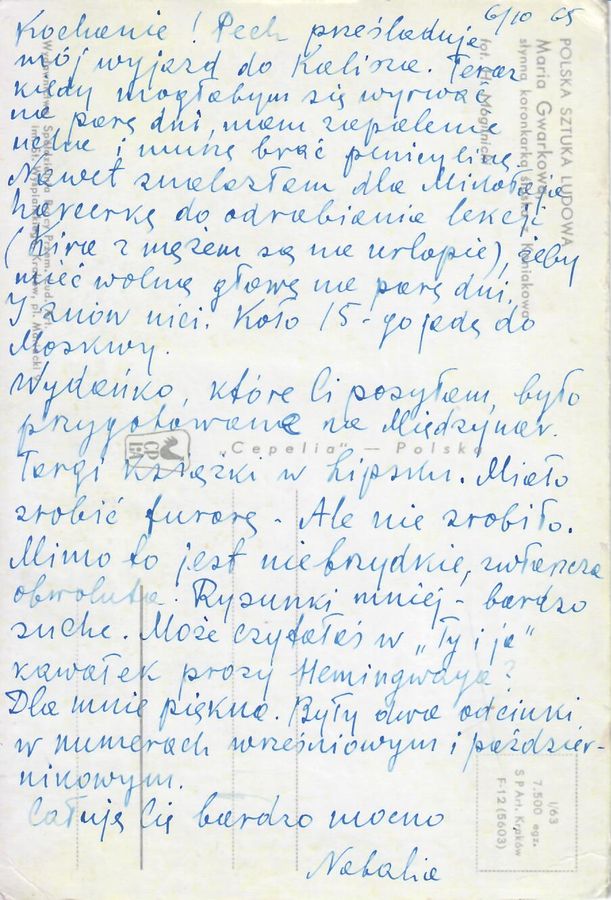 6/10 65
Kochanie! Pech prześladuje
mój wyjazd do Kalisza. Teraz
kiedy mogłabym się wyrwać
na parę dni, mam zapalenie
i muszę brać penicylinę.
Nawet znalazłam dla Mikołaja
harcerkę do odrabiania lekcji
(Kira z mężem są na urlopie), żeby
mieć wolną głowę na parę dni.
I znów nici. Koło 15-go jadę do
Moskwy.
Wydanko, które Ci posyłam, było
przygotowane na Międzynar.
Targi Książki w Lipsku. Miało
zrobić furorę - Ale nie zrobiło.
Mimo to jest niebrzydkie, zwłaszcza
obwoluta. Rysunki mniej - bardzo
suche. Może czytałaś w „Ty i ja”
kawałek prozy Hemingwaya?
Dla mnie piękna. Były dwa odcinki
w numerach wrześniowym i paździer-
nikowym.
Całuję Cię bardzo mocno
Natalia
POLSKA SZTUKA LUDOWA
Maria Gwarkowa
słynna koronkarka śląska z Koniakowa
fot.
„Cepelia” — Polska
CPLiA
I/63
7.500 egz.
S P Art. Kraków
F-12 (5603)